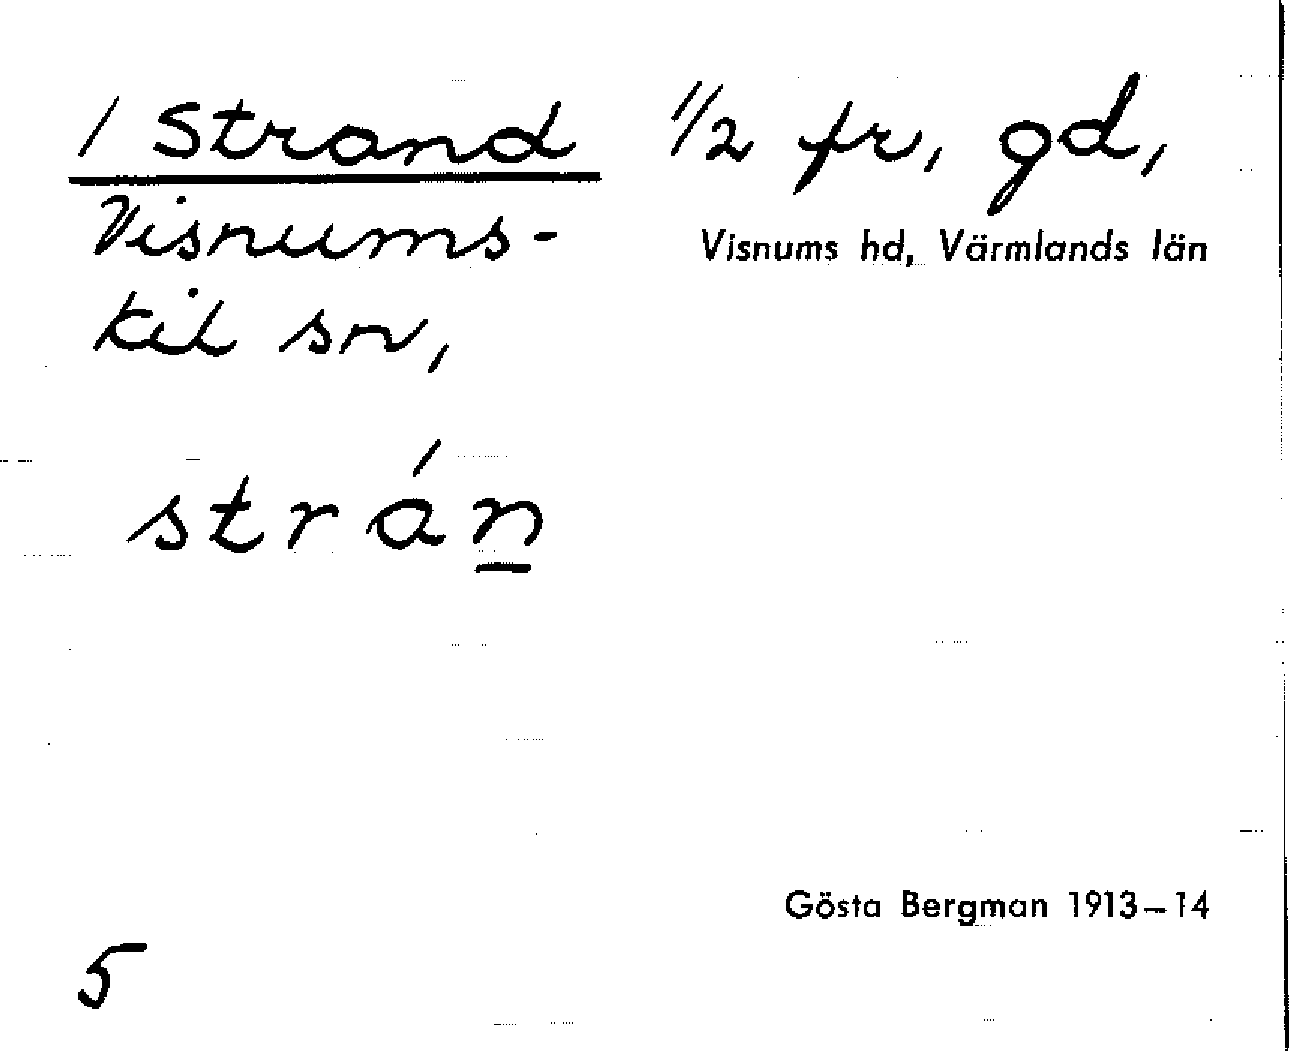 / Strand 1/2 fr, gd,
Visnums-
Visnums hd, Värmlands län
kil sn,
strán
Gösta Bergman 1913–14
5